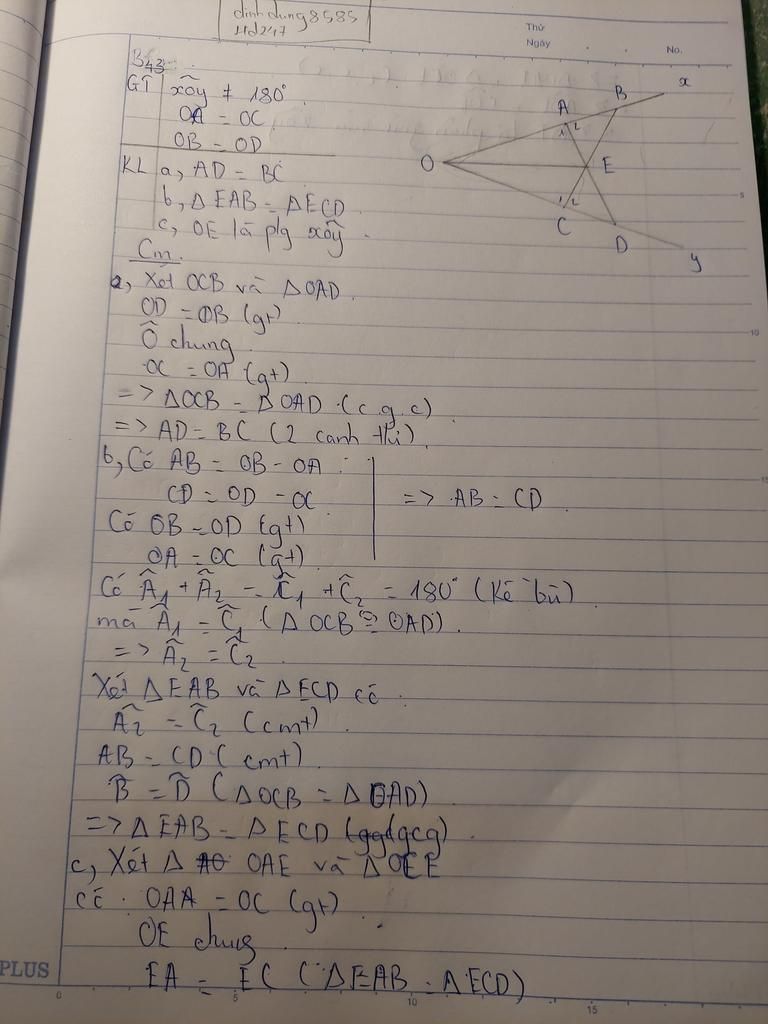 dinhdung8585
Hd247
Thứ
Ngày
No.
B43
GT xôy ≠ 180°
OA = OC
OB = OD
KL a, AD = BC
b, Δ EAB = ΔECD
c, OE là plg xôy.
x
B
A
1 2
O
E
1 2
C
D
y
Cm.
a, Xét OCB và ΔOAD.
OD = OB (gt)
Ô chung
OC = OA (gt)
=> ΔOCB = ΔOAD (c.g.c)
=> AD = BC (2 canh
b, Có AB = OB - OA
CD = OD - OC
=> AB = CD
Có OB = OD (gt)
OA = OC (gt)
Có Â1 + Â2 = Ĉ1 + Ĉ2 = 180° (Kê bù)
mà Â1 = Ĉ1 (Δ OCB = OAD).
=> Â2 = Ĉ2
Xét Δ EAB và ΔECD có
Â2 = Ĉ2 (cmt)
AB = CD (cmt)
B̂ = D̂ (ΔOCB = ΔOAD)
=> Δ EAB = Δ ECD (gcg)
c, Xét Δ OAE và ΔOCE
có OAA = OC (gt)
OE chung
EA = EC (ΔEAB = ΔECD)
PLUS
0 5 10 15
5
10
15